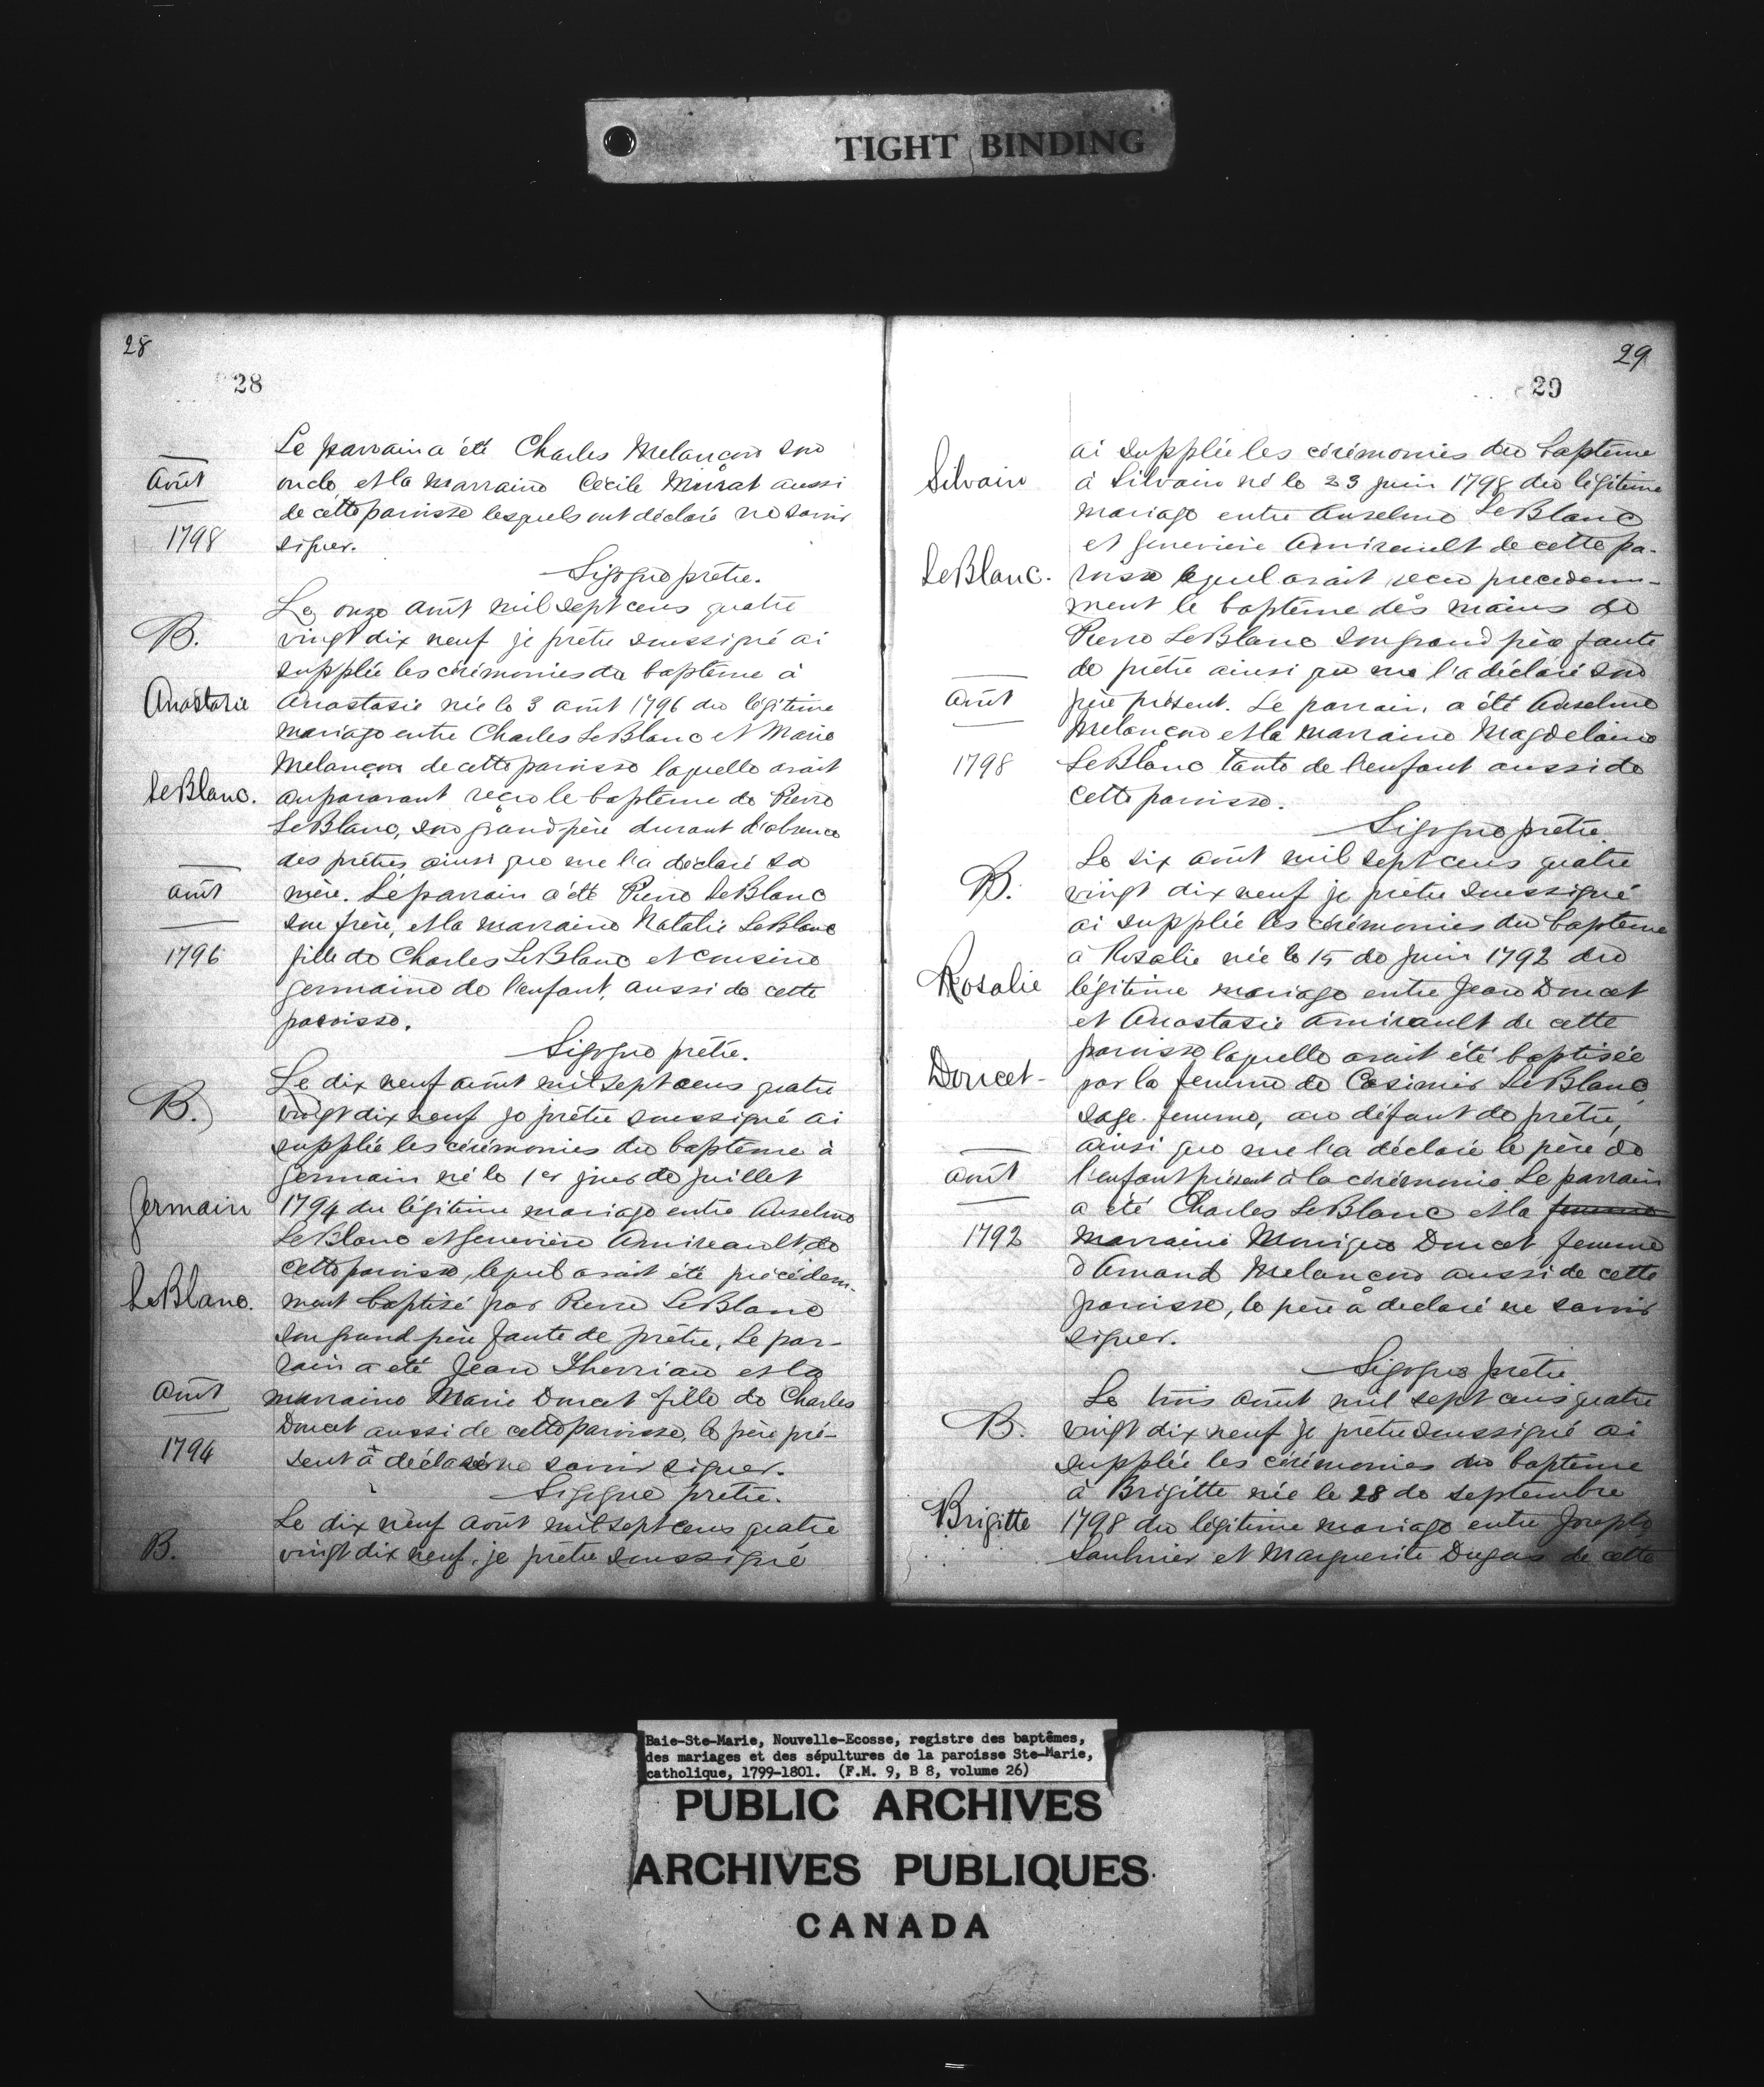 TIGHT BINDING
28
28
Le parrain a été Charles Melançon son
Août
oncle et la marraine Cécile Murat aussi
de cette paroisse lesquels ont déclaré ne savoir
1798
signer.
Sigogne prêtre.
Le onze août mil sept cens quatre
B.
vingt dix neuf je prêtre soussigné ai
supplée les cérémonies du baptême à
Anastasie
Anastasie née le 3 août 1796 du légitime
mariage entre Charles LeBlanc et Marie
Melançon de cette paroisse laquelle avait
LeBlanc.
auparavant reçu le baptême de Pierre
LeBlanc, son grand père durant l'absence
des prêtres ainsi que me l'a déclaré sa
août
mère. Le parrain a été Pierre LeBlanc
son frère, et la marraine Natalie LeBlanc
1796
fille de Charles LeBlanc et cousine
germaine de l'enfant, aussi de cette
paroisse.
Sigogne prêtre.
Le dix neuf août mil sept cens quatre
B.
vingt dix neuf je prêtre soussigné ai
supplée les cérémonies du baptême à
Germain né le 1er jour de juillet
Germain
1794 du légitime mariage entre Anselme
LeBlanc et Geneviève Amireault de
cette paroisse, lequel avait été précédem-
LeBlanc.
ment baptisé par Pierre LeBlanc
son grand père faute de prêtre, Le par-
rain a été Jean Therriau et la
Août
marraine Marie Doucet fille de Charles
Doucet aussi de cette paroisse, le père pré-
1794
sent a déclaré ne savoir signer.
Sigogne prêtre.
Le dix neuf août mil sept cens quatre
B.
vingt dix neuf, je prêtre soussigné
29
29
ai supplée les cérémonies du baptême
Silvain
à Silvain né le 23 juin 1798 du légitime
mariage entre Anselme LeBlanc
et Geneviève Amireault de cette pa-
LeBlanc.
roisse lequel avait reçu precedem-
ment le baptême dès mains de
Pierre LeBlanc son grand père faute
de prêtre ainsi que me l'a déclaré son
Août
père présent. Le parrain, a été Anselme
Melançon et la marraine Magdelaine
1798
LeBlanc tante de l'enfant aussi de
cette paroisse.
Sigogne prêtre
Le six août mil sept cens quatre
B.
vingt dix neuf je prêtre soussigné
ai supplée les cérémonies du bapteme
à Rosalie née le 15 de juin 1792 du
Rosalie
légitime mariage entre Jean Doucet
et Anastasie Amireault de cette
paroisse laquelle avait été baptisée
Doucet-
par la femme de Casimir LeBlanc
sage-femme, au défaut de prêtre,
ainsi que me l'a déclaré le père de
août
l'enfant présent à la cérémonie Le parrain
a été Charles LeBlanc et la femme
1792
marraine Monique Doucet femme
d'Amand Melançon aussi de cette
paroisse, le père a declaré ne savoir
signer.
Sigogne prêtre
Le trois août mil sept cens quatre
B.
vingt dix neuf je prêtre soussigné ai
supplée les cérémonies du baptême
à Brigitte née le 28 de septembre
Brigitte
1798 du légitime mariage entre Joseph
Saulnier et Marguerite Dugas de cette
Baie-Ste-Marie, Nouvelle-Ecosse, registre des baptêmes,
des mariages et des sépultures de la paroisse Ste-Marie,
catholique, 1799-1801. (F.M. 9, B 8, volume 26)
PUBLIC ARCHIVES
ARCHIVES PUBLIQUES
CANADA